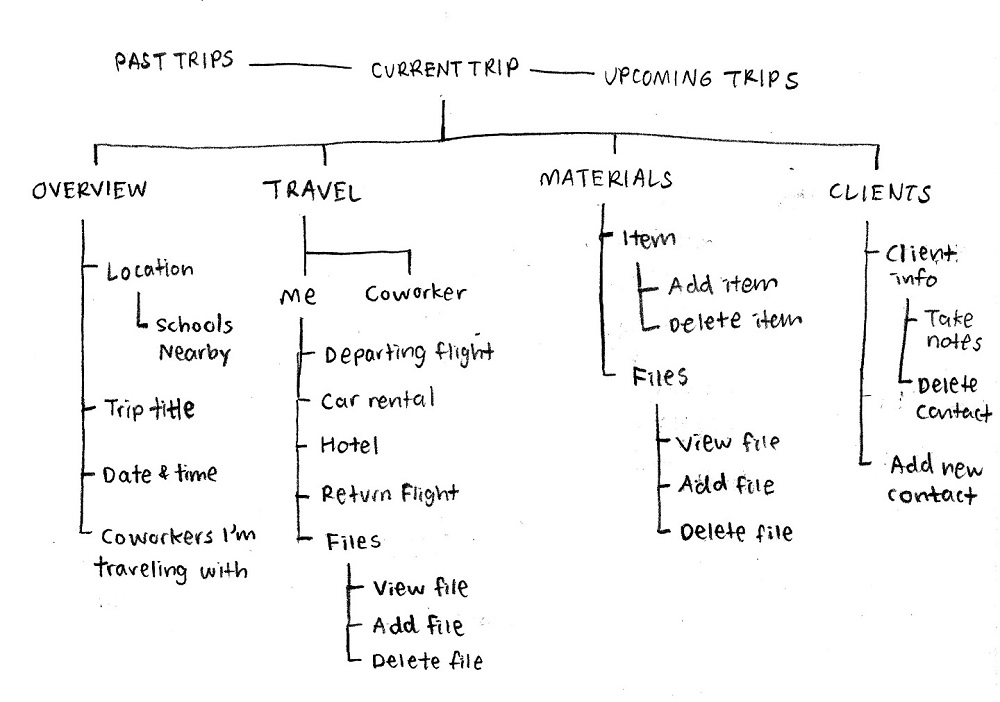 PAST TRIPS
CURRENT TRIP
UPCOMING TRIPS
OVERVIEW
Location
Schools
Nearby
Trip title
Date & time
Coworkers I'm
traveling with
TRAVEL
Me
Coworker
Departing flight
Car rental
Hotel
Return Flight
Files
View file
Add file
Delete file
MATERIALS
Item
Add item
Delete item
Files
View file
Add file
Delete file
CLIENTS
Client
info
Take
notes
Delete
contact
Add new
contact